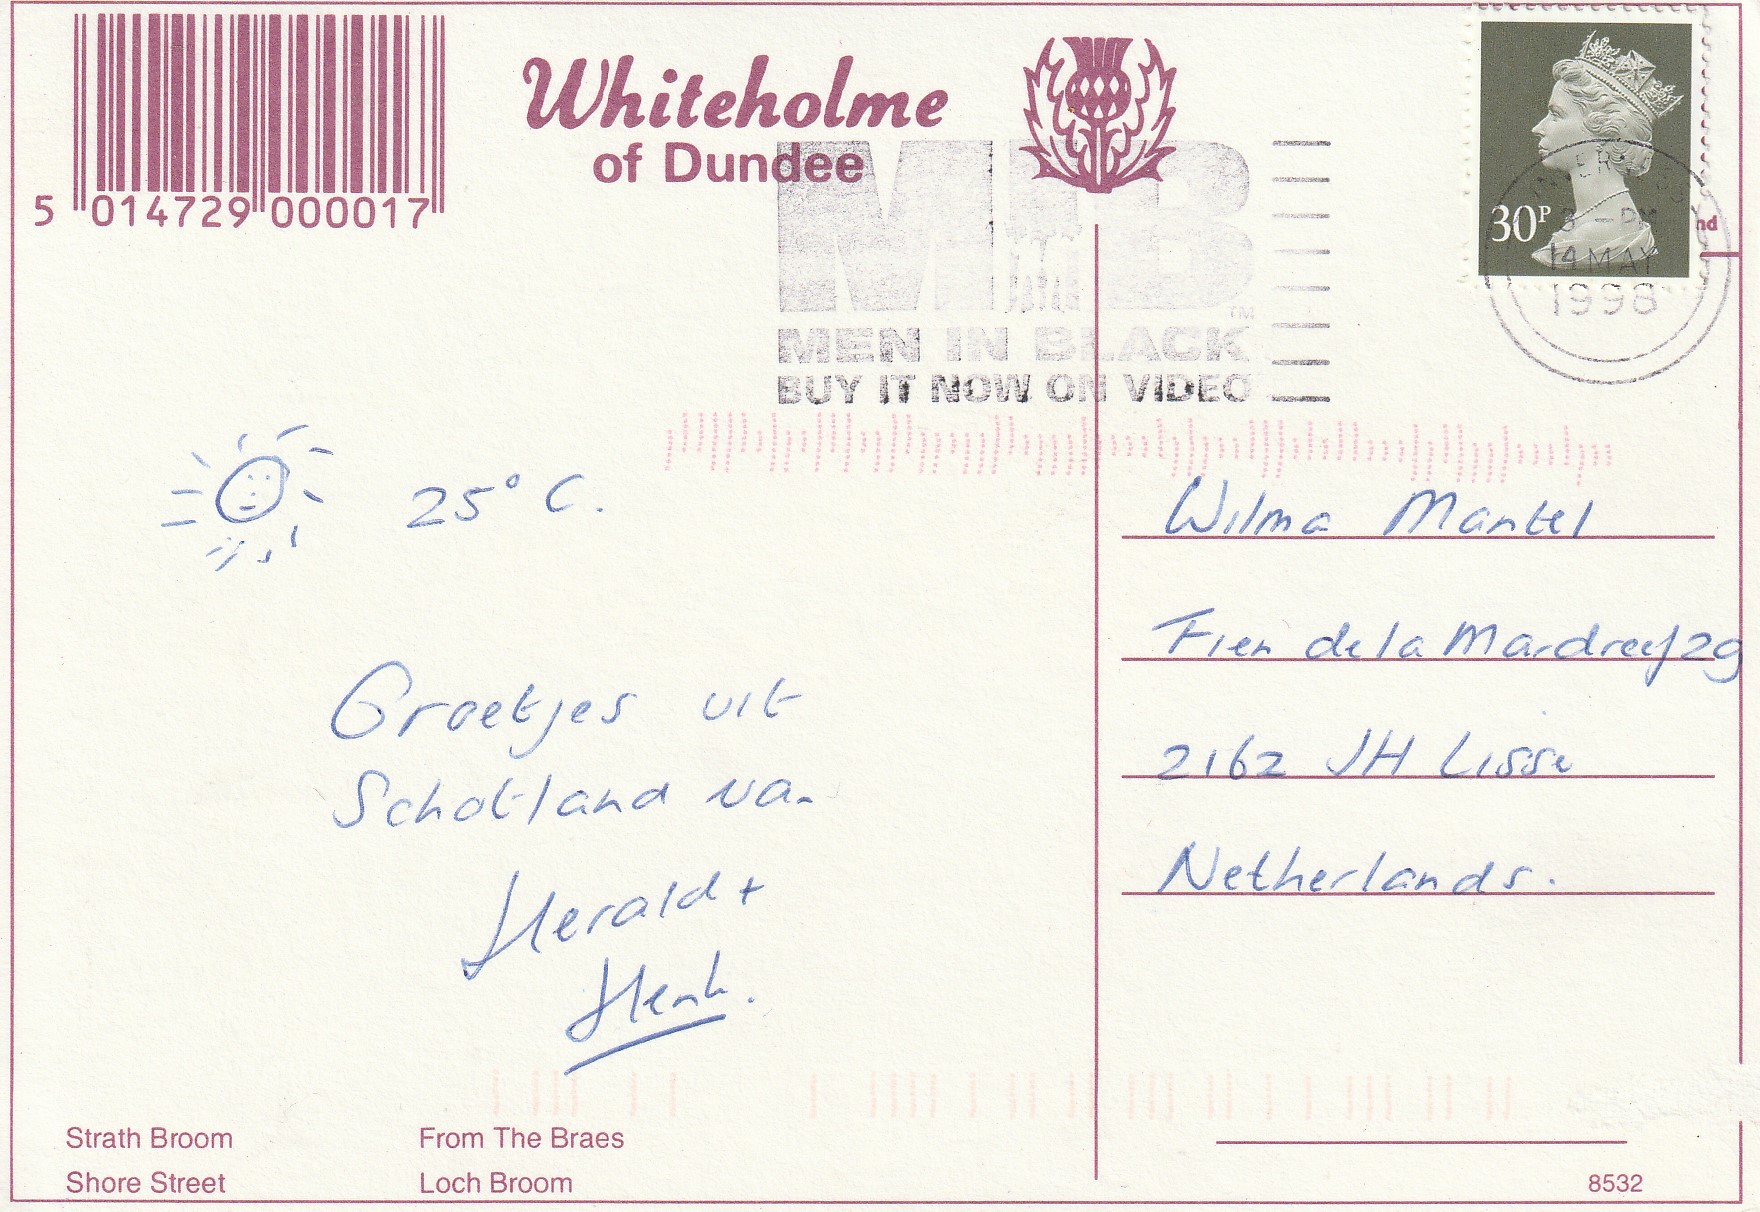 5 014729 000017
Whiteholme
of Dundee
30P
3 - PM
14 MAY
1998
MIB
TM
MEN IN BLACK
BUY IT NOW ON VIDEO
nd
25° C.
Groetjes uit
Schotland va.
Herald +
Henk.
Wilma Mantel
Fien de la Mardreef 29
2162 JH Lisse
Netherlands.
Strath Broom
From The Braes
Shore Street
Loch Broom
8532